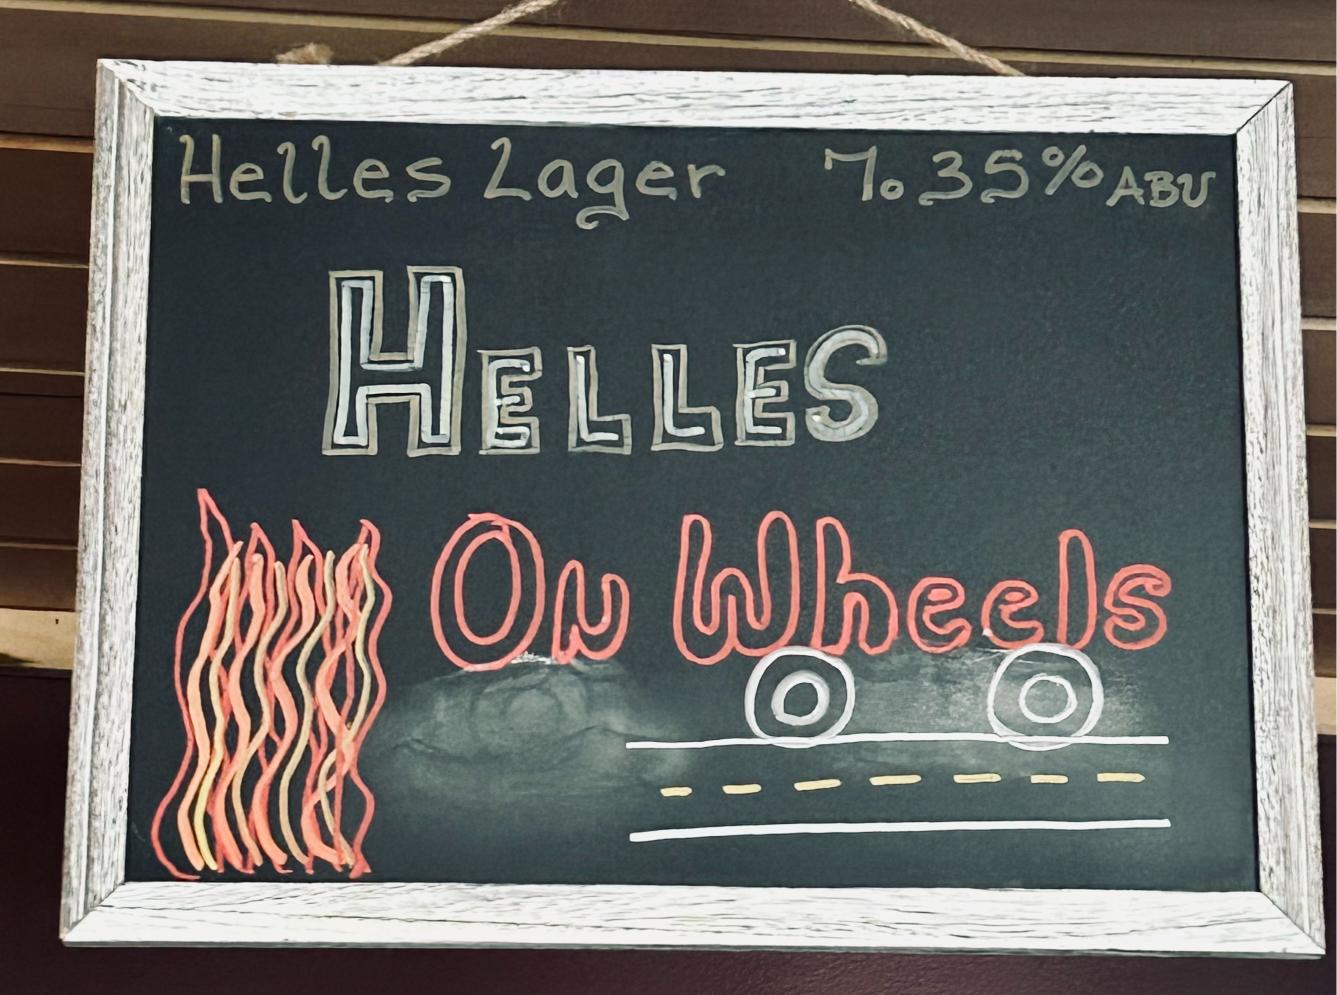 Helles Lager 7.35% ABV
HELLES
On Wheels